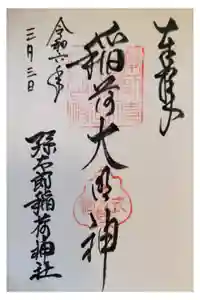 奉拝
稲荷大明神
令和六年
三月三日
弥太郎稲荷神社